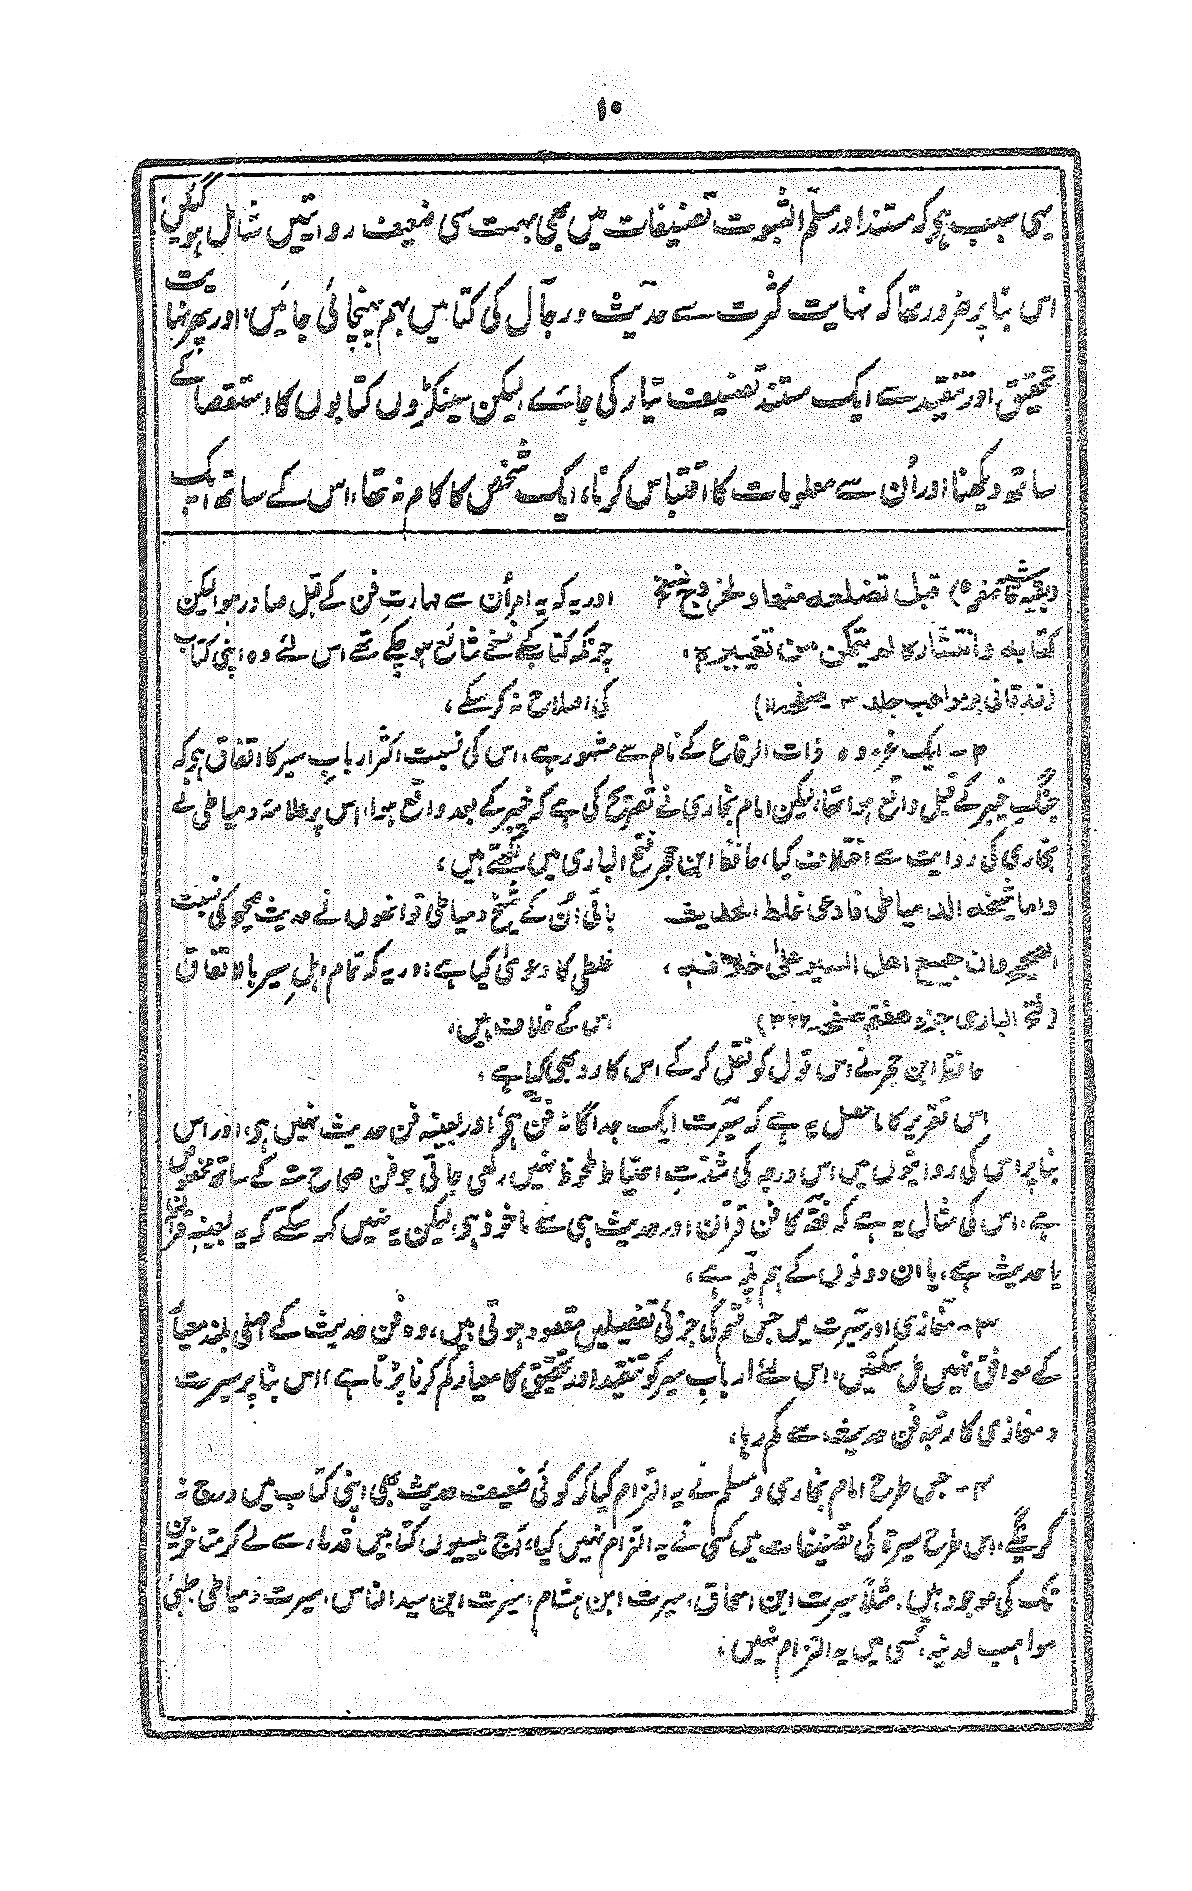 ۱۰
یہی سبب ہو کہ مستند اور مسلّم الثبوت تصنیفات میں بھی بہت سی ضعیف روایتیں شامل ہوگئیں،
اس بنا پر ضرور تھا کہ نہایت کثرت سے حدیث و رجال کی کتابیں بہم پہنچائی جائیں، اور پھر نہایت
تحقیق اور تنقید سے ایک مستند تصنیف تیار کی جائے، لیکن سینکڑوں کتابوں کا استقصا کے
ساتھ دیکھنا اور اُن سے معلومات کا اقتباس کرنا، ایک شخص کا کام نہ تھا، اس کے ساتھ ایک
(بقیہ حاشیہ صفحہ ۹) قبل تضلعه منها ولخروج نسخ اور یہ کہ یہ امر اُن سے مہارتِ فن کے قبل صادر ہوا لیکن
کتابه وانتشاره لم یتمکن من تغییره، چونکہ کتاب کے نسخے شائع ہو چکے تھے اس لئے وہ اپنی کتاب
(زرقانی بر مواہب جلد ۳ - صفحہ ۱۱) کی اصلاح نہ کر سکے،
۲- ایک غزوہ ذات الرقاع کے نام سے مشہور ہے، اس کی نسبت اکثر اربابِ سیر کا اتفاق ہو کہ
جنگِ خیبر کے قبل واقع ہوا تھا، لیکن امام بخاری نے تصریح کی ہے کہ خیبر کے بعد واقع ہوا، اس پر علامۂ دمیاطی نے
بخاری کی روایت سے اختلاف کیا، حافظ ابن حجر فتح الباری میں لکھتے ہیں،
واما شیخه الدمیاطی فادعی غلط الحدیث باقی اُن کے شیخ دمیاطی تو انھوں نے حدیث صحیح کی نسبت
الصحیح وان جمیع اهل السیر علی خلافه، غلطی کا دعویٰ کیا ہے، اور یہ کہ تمام اہلِ سیر بالاتفاق
(فتح الباری جزء ہفتم صفحہ ۳۲۲) اس کے خلاف ہیں،
حافظ ابن حجر نے اس قول کو نقل کر کے اس کا رد بھی کیا ہے،
اس تقریر کا ماحصل یہ ہے کہ سیرت ایک جداگانہ فن ہی اور بعینہ فن حدیث نہیں ہی، اور اس
بنا پر اس کی روایتوں میں اس درجہ کی شدّتِ احتیاط ملحوظ نہیں رکھی جاتی جو فن صحاح ستہ کے ساتھ مخصوص
ہے، اس کی مثال یہ ہے کہ فقہ کا فن قرآن اور حدیث ہی سے ماخوذ ہی، لیکن یہ نہیں کہہ سکتے کہ یہ بعینہ قرآن
یا حدیث ہے، یا ان دونوں کے ہم پلّہ ہے،
۳- مغازی اور سیرت میں جس قسم کی جزئی تفصیلیں مقصود ہوتی ہیں، وہ فن حدیث کے اصلی بلند معیار
کے موافق نہیں مل سکتیں، اس لئے اربابِ سیر کو تنقید اور تحقیق کا معیار کم کرنا پڑتا ہے، اس بنا پر سیرت
و مغازی کا رتبہ فن حدیث سے کم رہا،
۴- جس طرح امام بخاری و مسلم نے یہ التزام کیا کہ کوئی ضعیف حدیث بھی اپنی کتاب میں درج نہ
کرینگے، اس طرح سیرۃ کی تصنیفات میں کسی نے یہ التزام نہیں کیا، آج بیسیوں کتابیں قدماء سے لے کر متاخرین
تک کی موجود ہیں، مثلاً سیرت ابن اسحاق، سیرت ابن ہشام، سیرت ابن سید الناس، سیرت دمیاطی، حلبی،
مواہب لدنیہ، کسی میں یہ التزام نہیں،